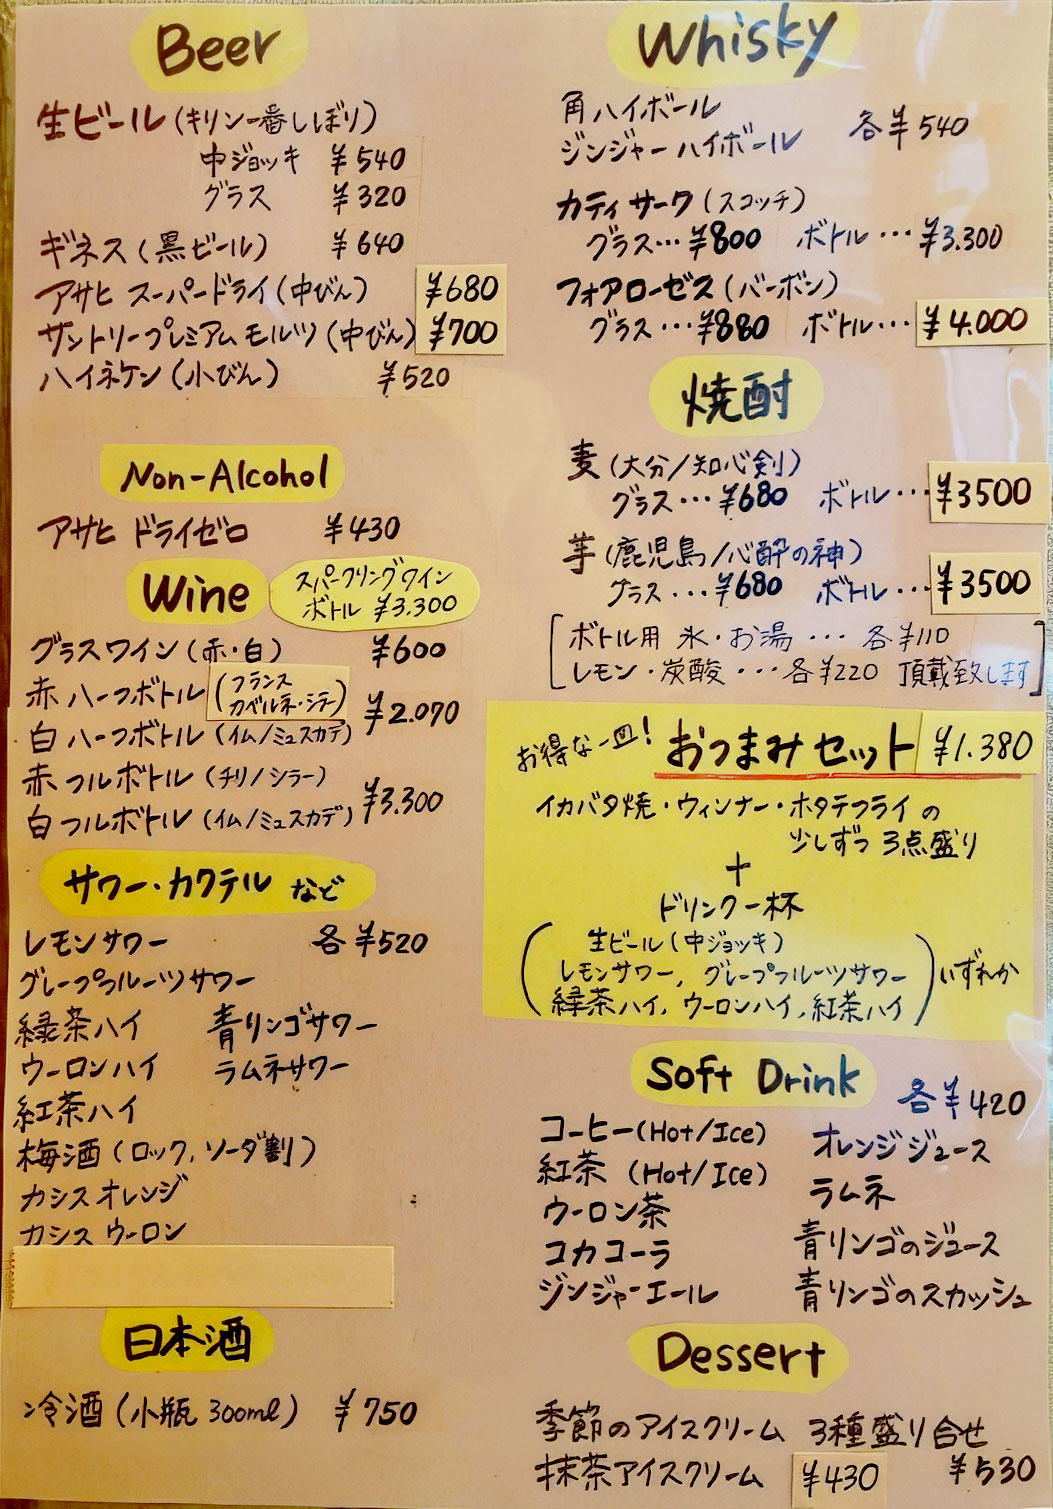 Beer
生ビール(キリン一番しぼり)
中ジョッキ ¥540
グラス ¥320
ギネス(黒ビール) ¥640
アサヒ スーパードライ(中びん) ¥680
サントリープレミアムモルツ(中びん) ¥700
ハイネケン(小びん) ¥520
Non-Alcohol
アサヒ ドライゼロ ¥430
Wine
スパークリングワイン
ボトル ¥3.300
グラスワイン(赤・白) ¥600
赤 ハーフボトル(フランス
カベルネ・シラー)
白 ハーフボトル(イム/ミュスカデ) ¥2.070
赤 フルボトル(チリ/シラー)
白 フルボトル(イム/ミュスカデ) ¥3.300
サワー・カクテル など
レモンサワー 各¥520
グレープフルーツサワー
緑茶ハイ 青リンゴサワー
ウーロンハイ ラムネサワー
紅茶ハイ
梅酒(ロック,ソーダ割)
カシスオレンジ
カシスウーロン
日本酒
冷酒(小瓶 300ml) ¥750
Whisky
角ハイボール
ジンジャーハイボール 各¥540
カティサーク(スコッチ)
グラス…¥800 ボトル…¥3.300
フォアローゼス(バーボン)
グラス…¥880 ボトル…¥4.000
焼酎
麦(大分/知心剣)
グラス…¥680 ボトル…¥3500
芋(鹿児島/心酔の神)
グラス…¥680 ボトル…¥3500
[ボトル用 氷・お湯…各¥110
レモン・炭酸…各¥220 頂戴致します]
お得な一皿! おつまみセット ¥1.380
イカバタ焼・ウィンナー・ホタテフライの
少しずつ 3点盛り
+
ドリンク一杯
(生ビール(中ジョッキ)
レモンサワー, グレープフルーツサワー
緑茶ハイ, ウーロンハイ, 紅茶ハイ)いずれか
Soft Drink 各¥420
コーヒー(Hot/Ice) オレンジジュース
紅茶 (Hot/Ice) ラムネ
ウーロン茶
コカコーラ 青リンゴのジュース
ジンジャーエール 青リンゴのスカッシュ
Dessert
季節のアイスクリーム 3種盛り合せ
抹茶アイスクリーム ¥430 ¥530